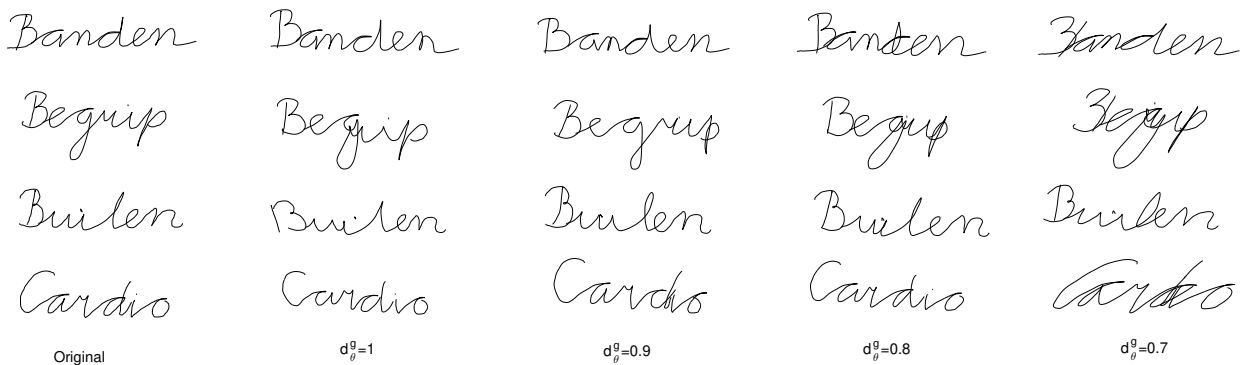 Banden Banden Banden Banden Banden
Begrip Begrip Begrip Begrip Begrip
Builen Builen Builen Builen Builen
Cardio Cardio Cardio Cardio Cardio
Original d_θ^g=1 d_θ^g=0.9 d_θ^g=0.8 d_θ^g=0.7